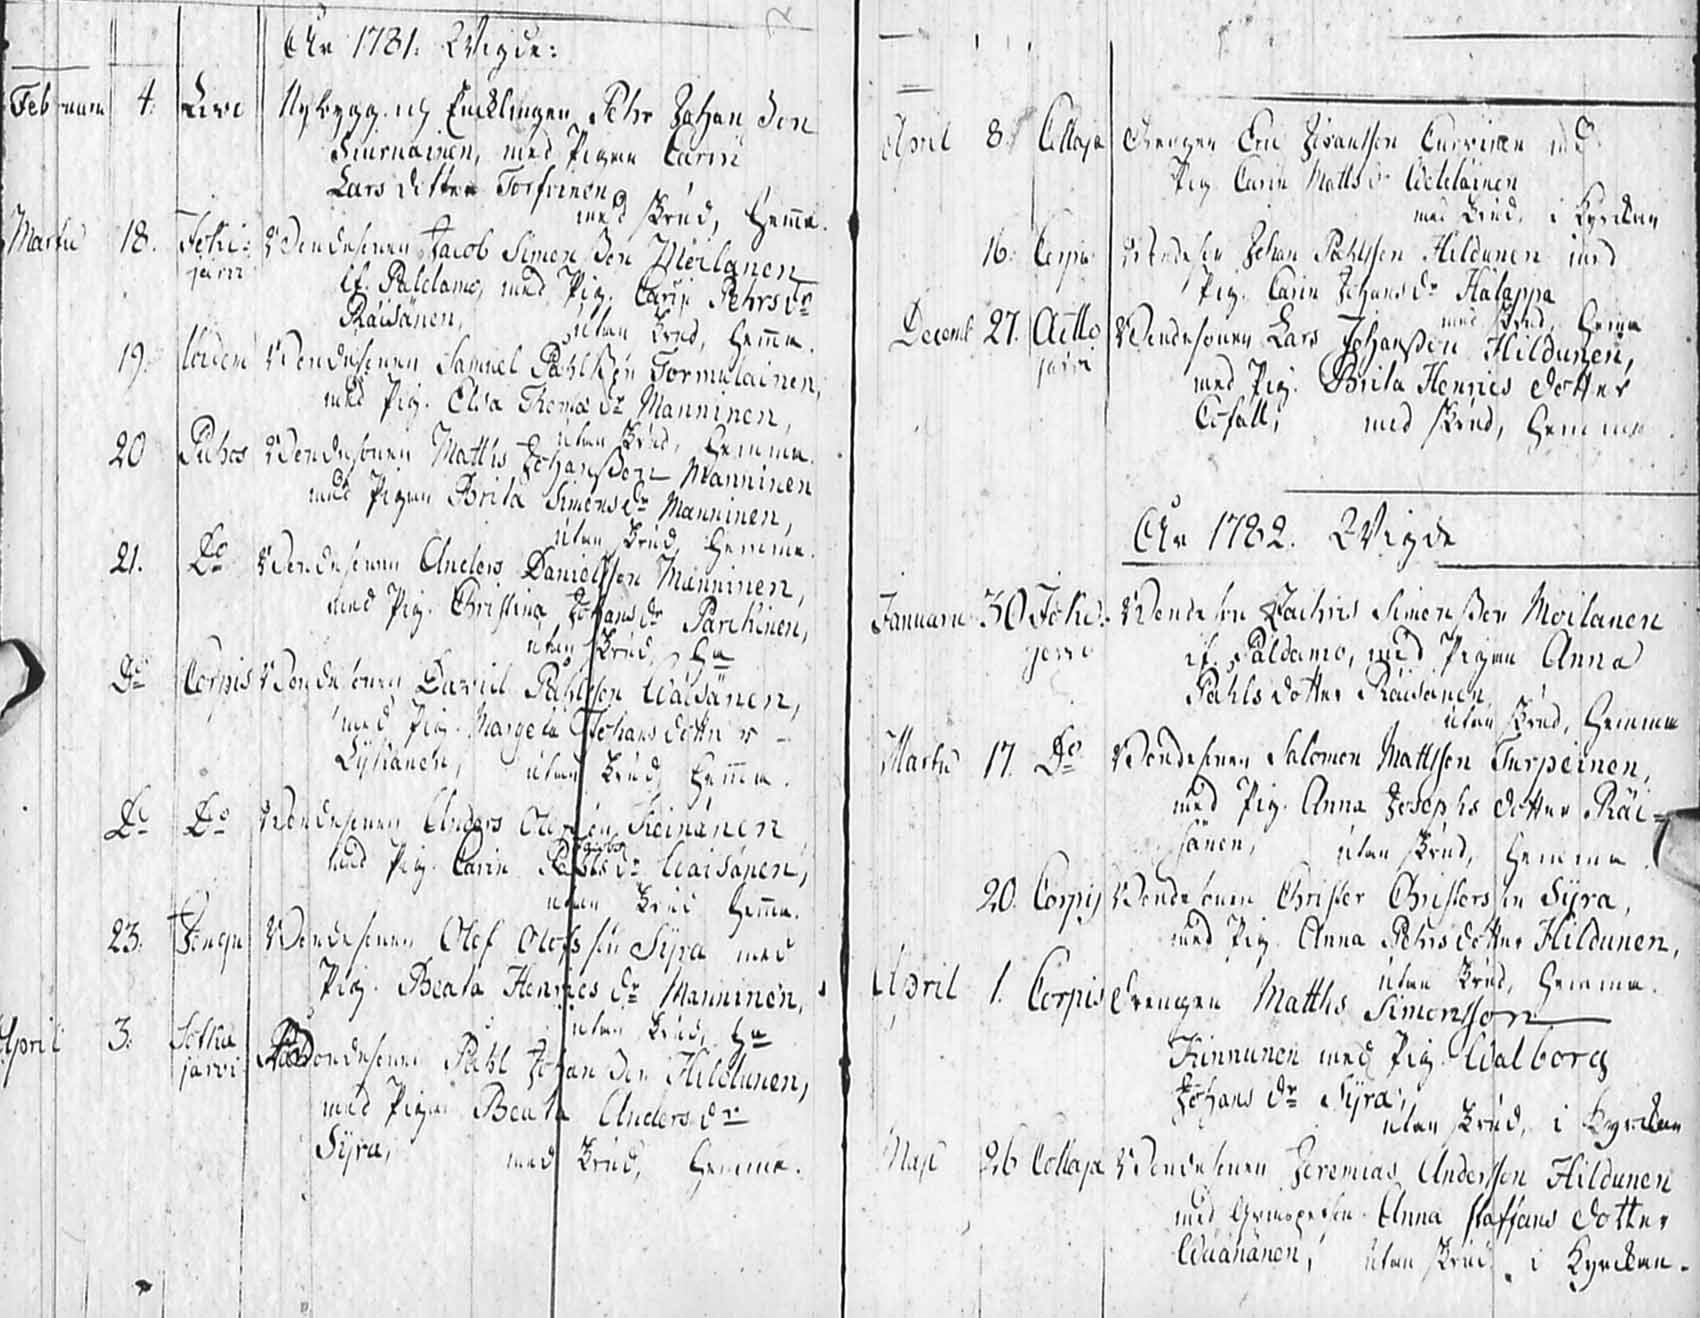 År 1781. Wigde:
Februarii 4. Livo Nybygg. och Encklingen Pehr Johan Son
Siuruainen, med Pigan Carin
Lars dotter Torfvinen
med Krud, Hemma.
Martii 18. Joki: Bondesonen Jacob Simonsson Moilanen
järvi if. Paldamo, med Pig. Carin Pehrs dr
Räisänen, utan Krud, Hemma.
19. Bondesonen Samuel Påhlsson Tormulainen,
med Pig. Elsa Thomæ dr Manninen,
utan Krud, Hemma.
20 Puhos Bondesonen Matths Johansson Manninen
med Pigan Brita Simonsdr Manninen,
utan Krud Hemma.
21. Do Bondesonen Anders Danielsson Manninen,
med Pig. Christina Johans dr Parckinen,
utan Krud, Ha
Do Corpis Bondesonen Daniel Påhlsson Waisänen,
med Pig. Margeta Johans dotter
utan Krud, Hemma.
Do Do Bondesonen Anders Keinänen
med Pig. Carin dr Waisänen,
utan Krud Hemma.
23. Jongu Bondesonen Olof Olofsson Syra med
Pig. Beata Henrics dr Manninen,
utan Krud, Ha
April 3. Sotka Bondesonen Påhl Johan Son Hildunen,
järvi med Pigan Beata Anders dr
Syra, med Krud, Hemma.
April 8. Collaja Drengen Eric Curvinen med
Pig. Carin Matts dr
med Krud, i Kyrckan
16. Corpis Bondeson Johan Påhlsson Hildunen med
Pig. Carin Johans dr Halappa
med Krud, Hemma
Decemb 27. Aitto Bondesonen Lars Johansson Hildunen,
järvi med Pig. Brita Henrics dotter
med Krud, Hemma
År 1782. Wigde
Januarii 30 Joki: Bondeson Zachris Simonsson Moilanen
jervi if. Paldamo, med Pigan Anna
Påhls dotter Räisänen
utan Krud, Hemma
Martii 17. Do Bondesonen Salomon Mattsson Turpeinen,
med Pig. Anna Josephs dotter Räi=
sänen, utan Krud, Hemma.
20. Corpis Bondesonen Christer Christersson Syra,
med Pig. Anna Pehrs dotter Hildunen,
utan Krud, Hemma.
April 1. Corpis Drengen Matths Simonsson
Kinnunen med Pig. Walborg
Johans dr Syra,
utan Krud, i Kyrckan
Maji 26 Collaja Bondesonen Jeremias Andersson Hildunen
med Anna Staffans dotter
Waananen, utan Krud, i Kyrckan.